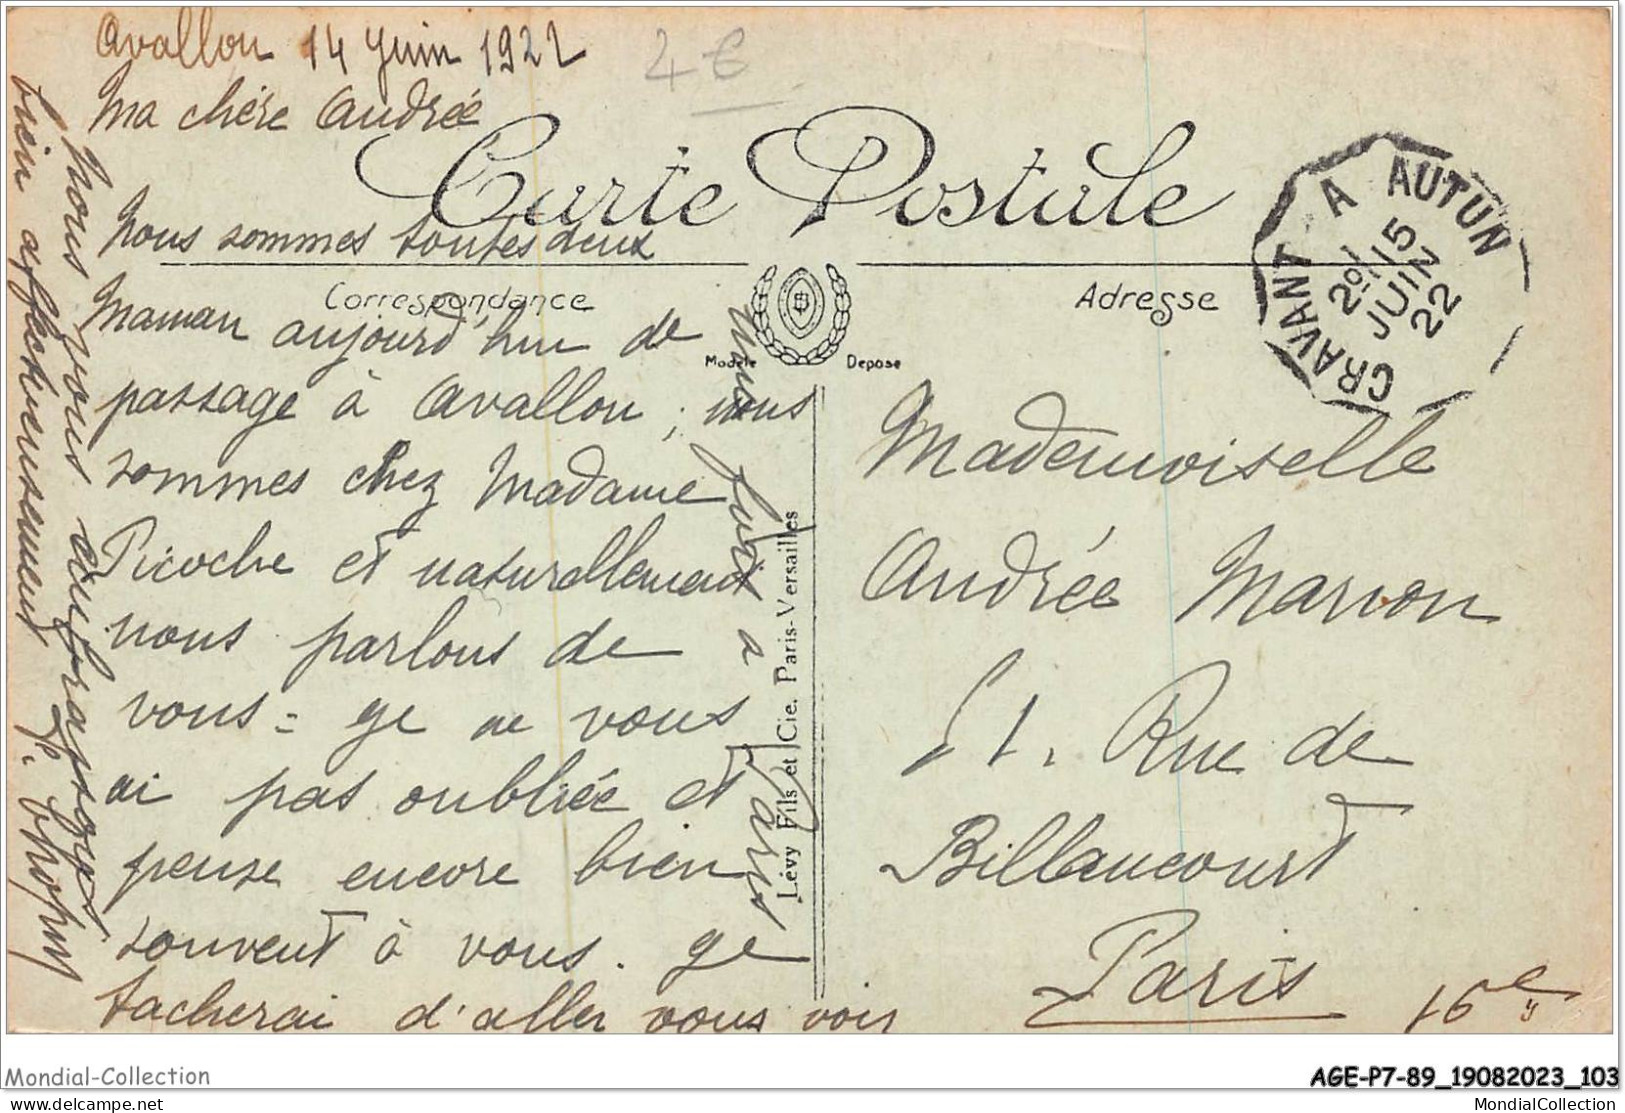 Avallon 14 Juin 1922
4€
Ma chère Andrée
Carte Postale
Nous sommes toutes deux
Correspondance
Adresse
Maman aujourd'hui de
passage à Avallon ; nous
sommes chez Madame
Picoche et naturellement
nous parlons de
vous = je ne vous
ai pas oubliée et
pense encore bien
souvent à vous. je
tacherai d'aller vous voir
une fois a
Paris
nous vous
bien affectueusement
Modèle Déposé
Lévy Fils et Cie. Paris-Versailles
CRAVANT A AUTUN
2º/ 15
JUIN
22
Mademoiselle
Andrée Marion
51. Rue de
Billancourt
Paris 16e
Mondial-Collection
AGE-P7-89_19082023_103
delcampe.net
MondialCollection